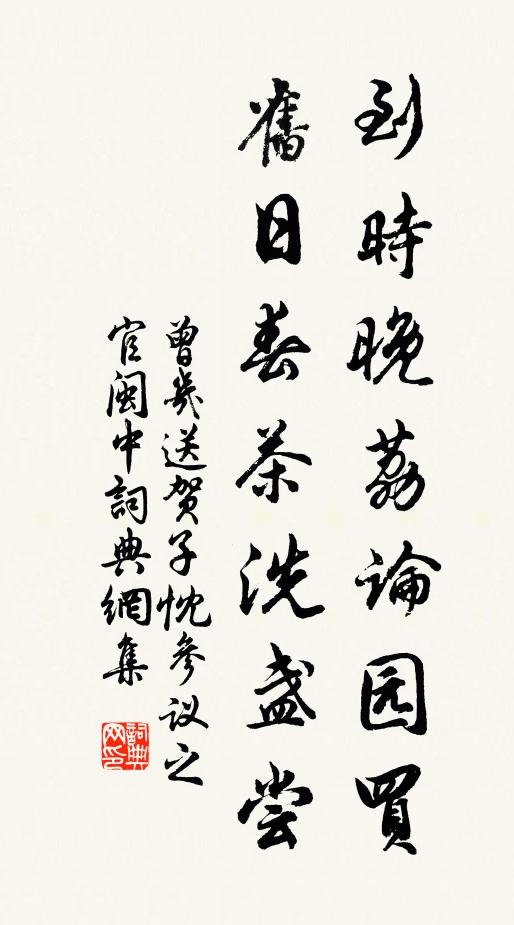 到時晚荔論园買
舊日春茶洗盏尝
曾幾送賀子忱參议之
官閩中詞典網集
詞典
网印